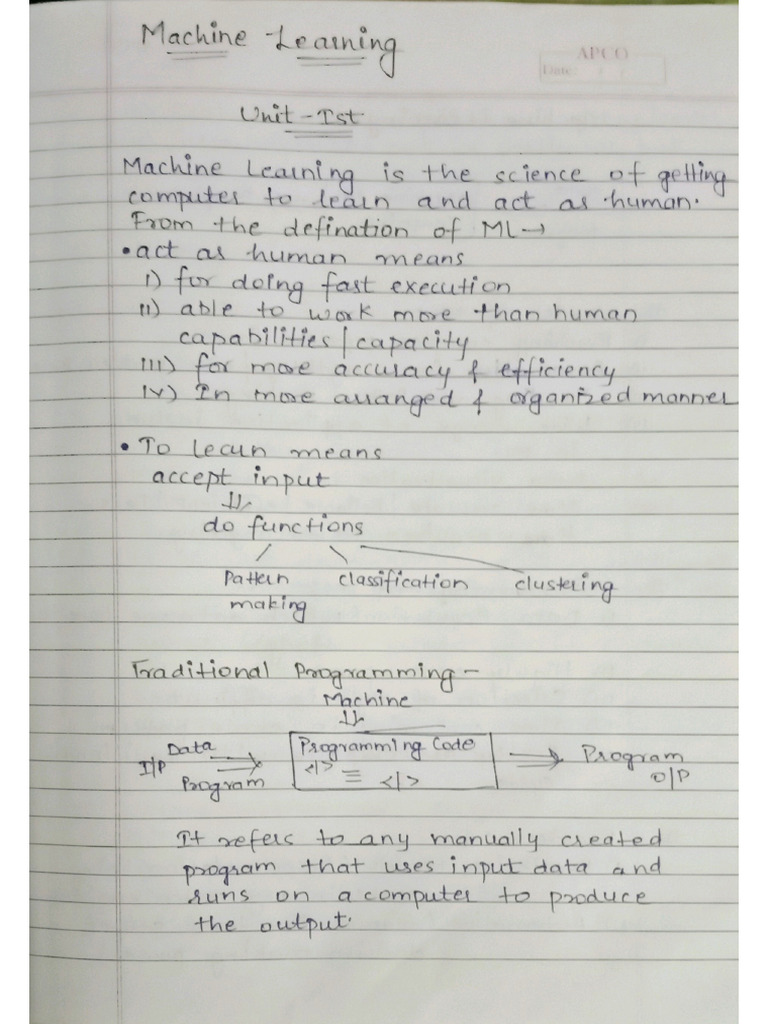 Machine Learning
APCO
Date:
Unit - Ist
Machine Learning is the science of getting
computer to learn and act as human.
From the defination of ML →
• act as human means
i) for doing fast execution
ii) able to work more than human
capabilities / capacity
iii) for more accuracy & efficiency
iv) In more arranged & organized manner
• To learn means
accept input
⇓
do functions
Pattern making
classification
clustering
Traditional Programming -
Machine
⇓
I/P Data
Program
⇒
Programming Code
</> ≡ </>
⇒ Program
O/P
It refers to any manually created
program that uses input data and
runs on a computer to produce
the output.